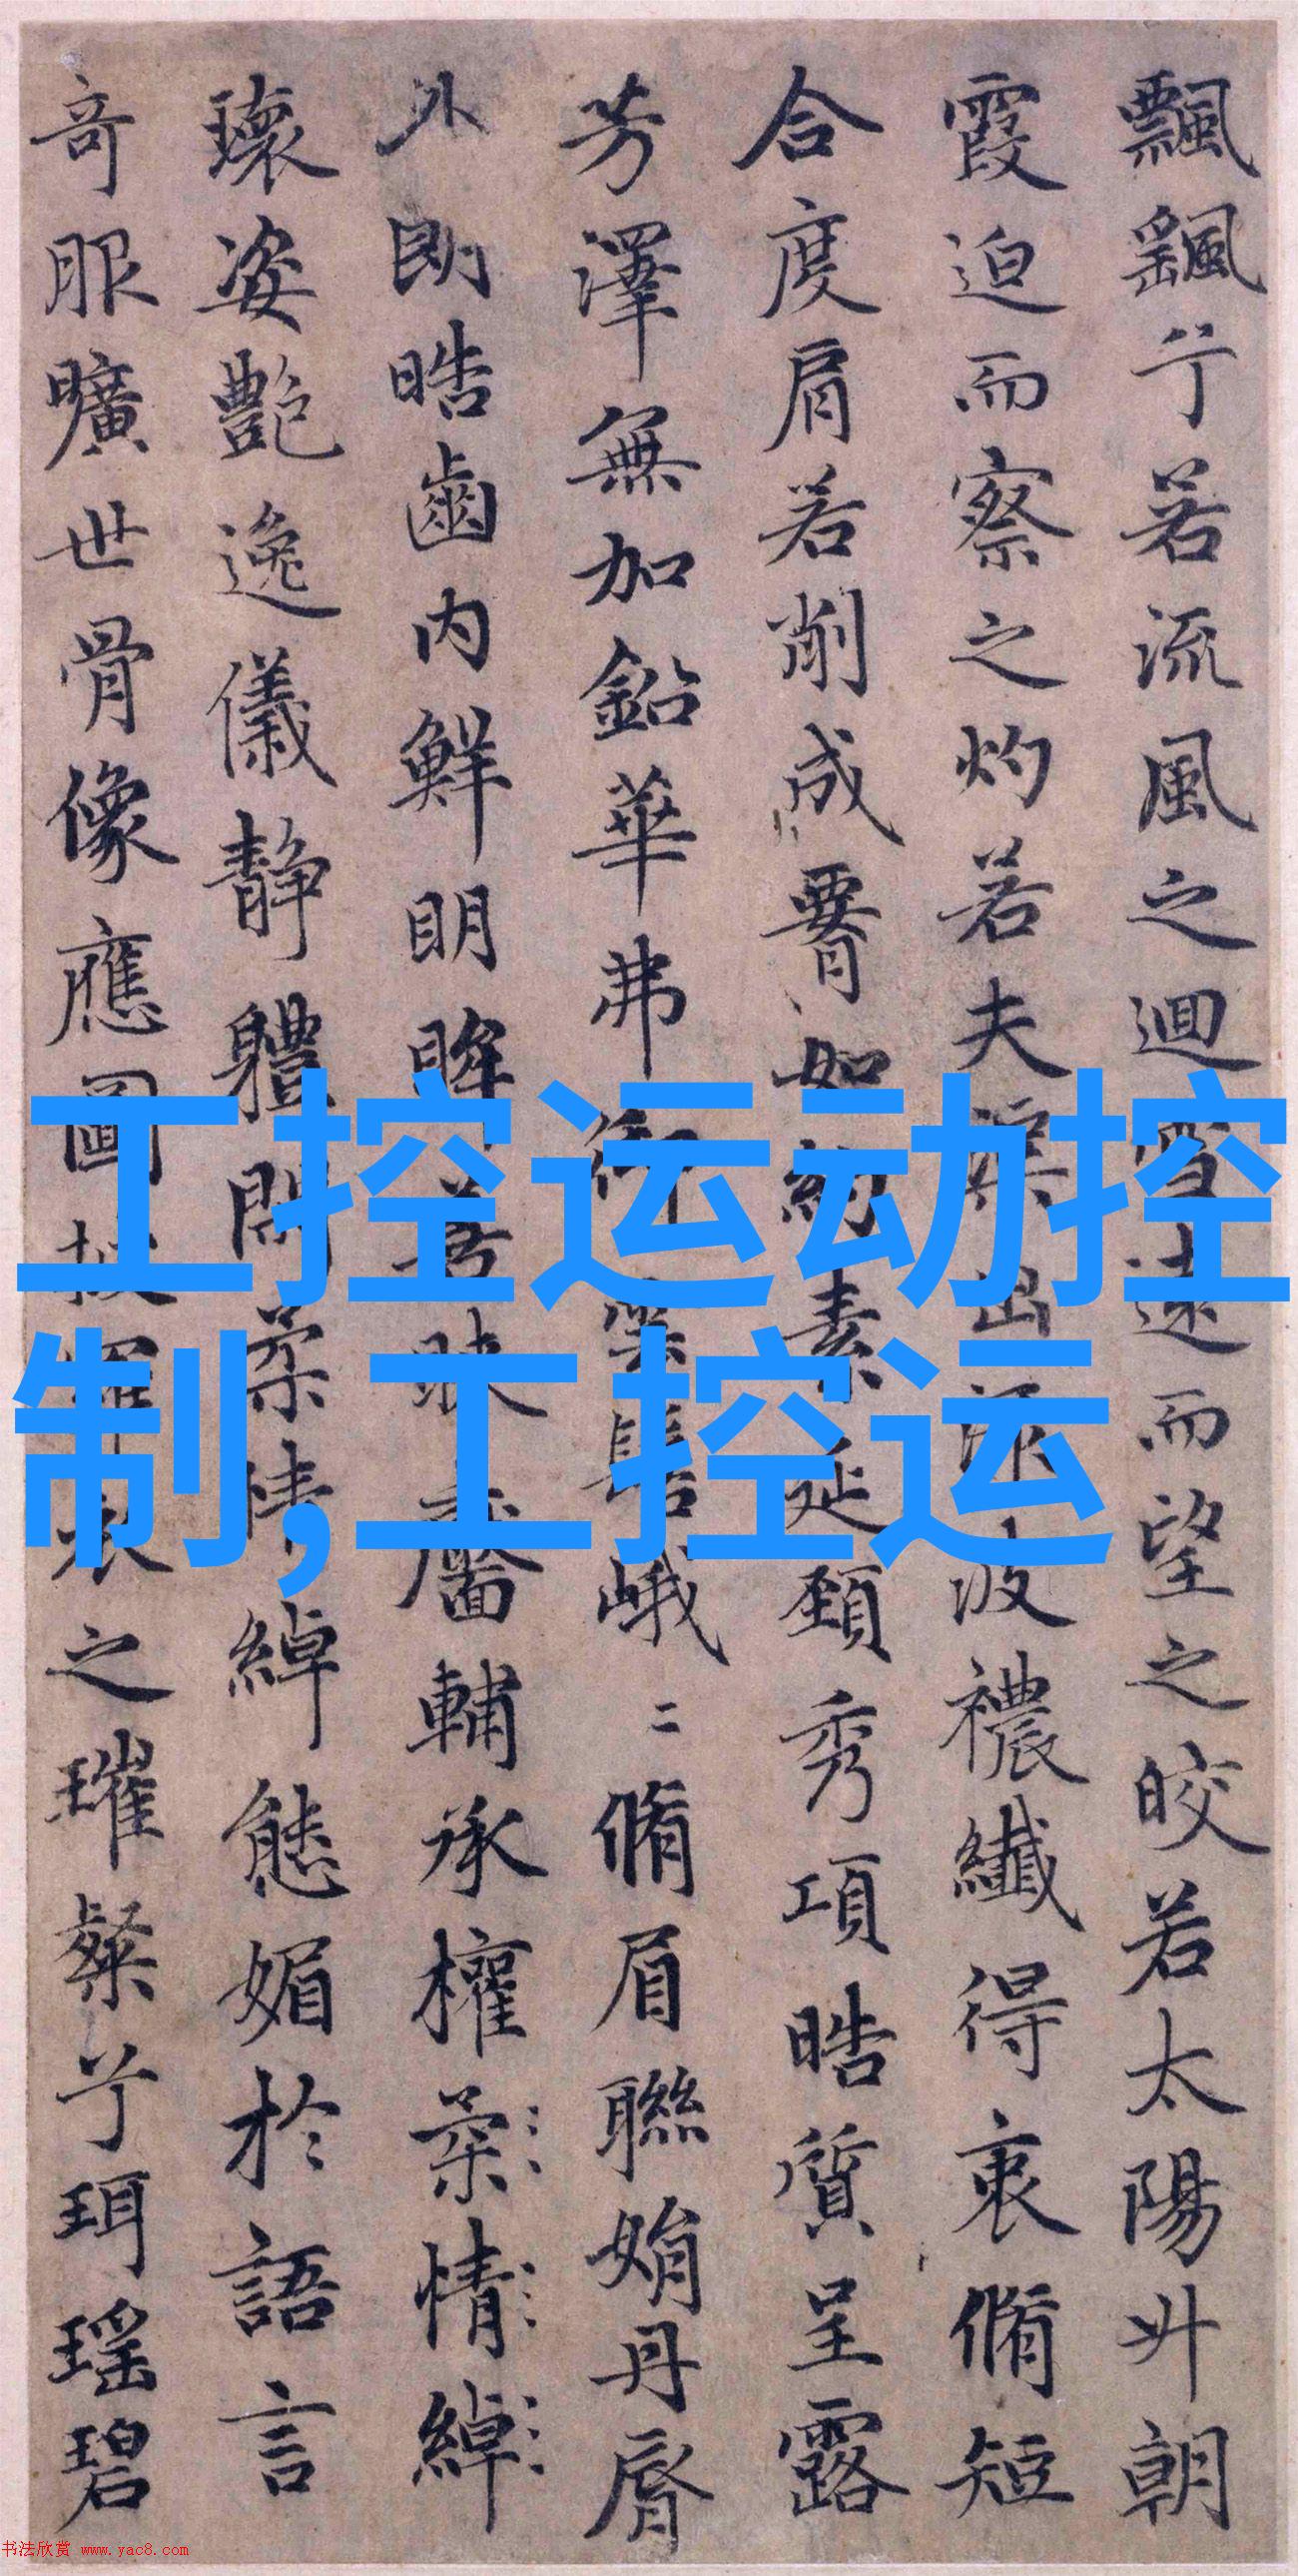 飄颻兮若流風之迴雪遠而望之皎若太陽升朝
霞迫而察之灼若夫渠出淥波襛纖得衷脩短
合度肩若削成署如約素延頸秀項皓質呈露
芳澤無加鉛華弗御雲髻峨〻脩眉聯娟丹脣
外朗皓齒內鮮明眸善睞靨輔承權柔情綽
瓌姿艷逸儀靜體閑柔情綽態媚於語言
奇服曠世骨像應圖披羅衣之璀粲兮珥瑤碧
工控运动控
制,工控运
书法欣赏 www.yac8.com